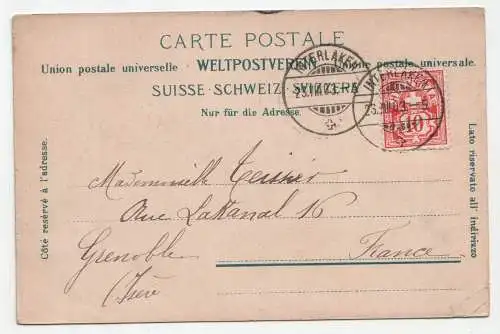 CARTE POSTALE
Union postale universelle WELTPOSTVEREIN Unione postale universale.
SUISSE · SCHWEIZ · SVIZZERA
Nur für die Adresse.
INTERLAKEN
23.VII.03.
INTERLAKEN
23.VII.03.-5
10
Côté reservé à l'adresse.
Lato riservato all' indirizzo
Mademoiselle
Rue Lakanal 16
Grenoble France
(Isère